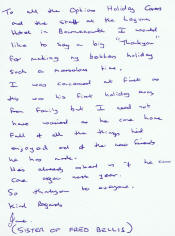 To all the Options Holiday Crew
and the staff at the Laguna
Hotel in Bournemouth I would
like to say a big "Thankyou"
for making my brothers holiday
such a marvelous time.
I was concerned at first as
this was his first holiday away
from family but I need not
have worried as he came home
full of all the things he'd
enjoyed and of the new friends
he has made.
He's already asked us if he can
come again next year.
So thankyou to everyone.
Kind Regards
(SISTER OF FRED BELLIS)